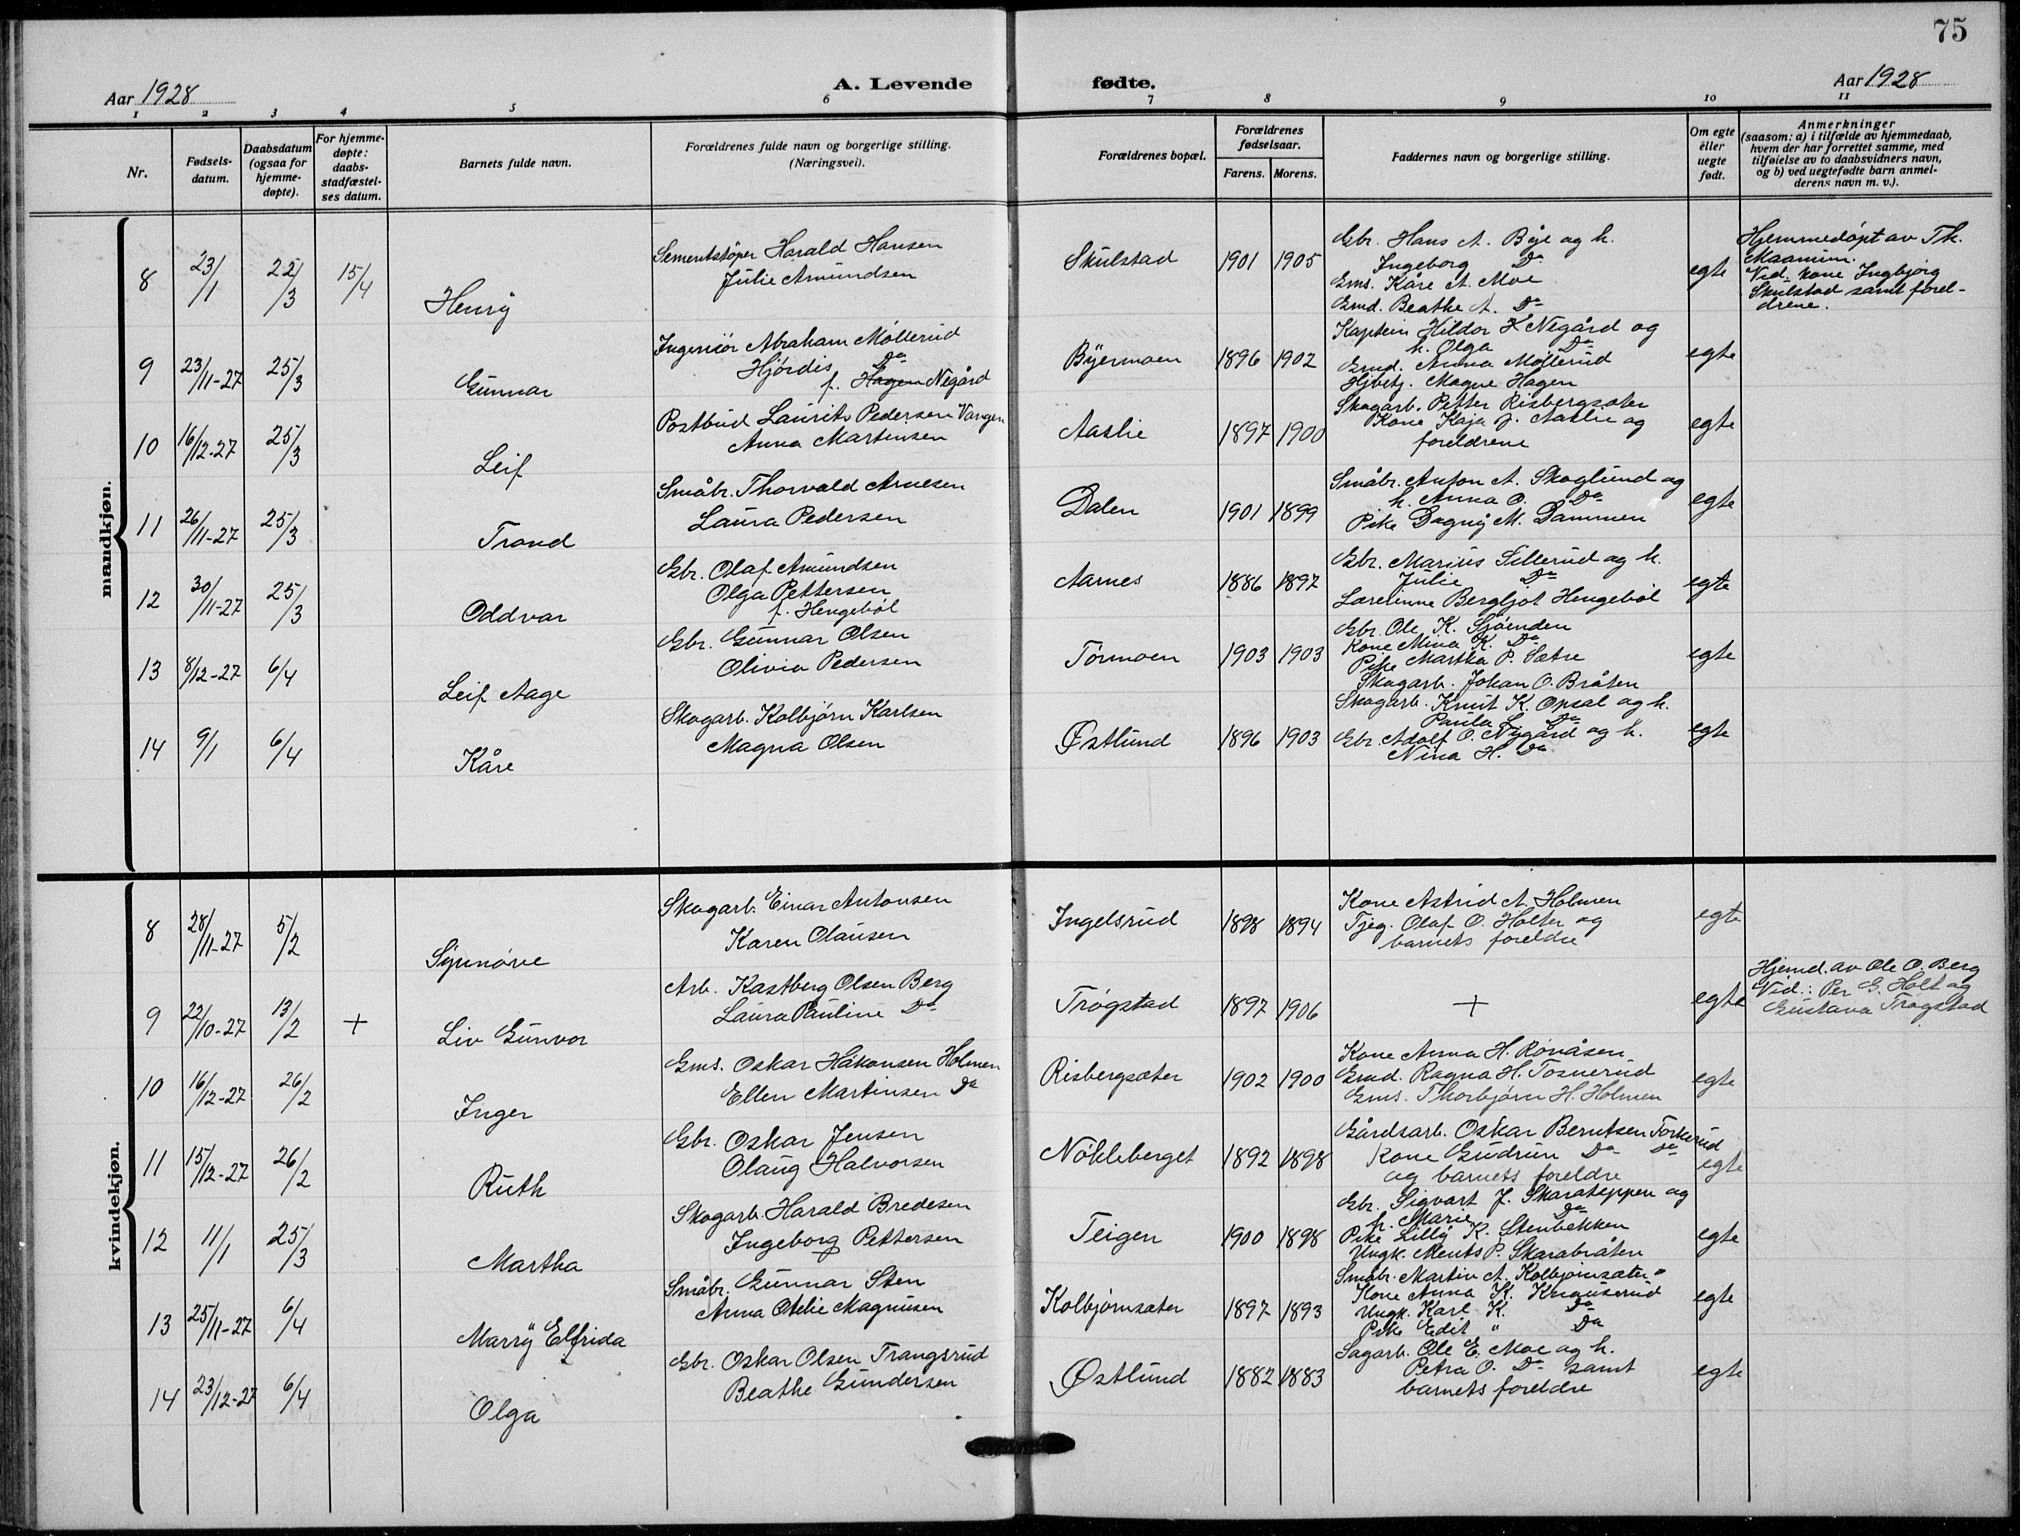 75
Aar 1928
A. Levende
fødte.
Aar 1928
1 2 3 4 5 6 7 8 9 10 11
Nr.
Fødsels-
datum.
Daabsdatum
(ogsaa for
hjemme-
døpte).
For hjemme-
døpte:
daabs-
stadfæstel-
ses datum.
Barnets fulde navn.
Forældrenes fulde navn og borgerlige stilling.
(Næringsvei).
Forældrenes bopæl.
Forældrenes
fødselsaar.
Farens. Morens.
Faddernes navn og borgerlige stilling.
Om egte
eller
uegte
født.
Anmerkninger
(saasom: a) i tilfælde av hjemmedaab,
hvem der har forrettet samme, med
tilføielse av to daabsvidners navn,
og b) ved uegtefødte barn anmel-
derens navn m. v.).
mandkjøn.
8 23/1 22/3 15/4 Henry
Sementstøper Harald Hansen
Julie Amundsen
Skulstad 1901 1905
Gbr. Hans A. Bye og h.
Ingeborg Do
Gms. Kåre A. Moe
Gmd. Beathe A. Do
egte
Hjemmedøpt av Th.
Maamum.
Vid. kone Ingbjørg
Skulstad samt forel-
drene.
9 23/11-27 25/3 Gunnar
Ingeniör Abraham Møllerud
Hjørdis Do
f. Hagen Negård
Byermoen 1896 1902
Kaptein Hildor K Negård og
h. Olga Do
Gmd. Anna Møllerud
Hjbstj. Magne Hagen
egte
10 16/12-27 25/3 Leif
Postbud Laurits Pedersen Vangen
Anna Martinsen
Aaslie 1897 1900
Skogarb. Petter Risbergsæter
Kone Kaja J. Aaslie og
foreldrene
egte
11 26/11-27 25/3 Trond
Småbr. Thorvald Arnesen
Laura Pedersen
Dalen 1901 1899
Småbr. Anton A. Skoglund og
h. Anna O. Do
Pike Dagny M. Dammen
egte
12 30/11-27 25/3 Oddvar
Gbr. Olaf Amundsen
Olga Pettersen
f. Hengebøl
Aarnes 1886 1897
Gbr. Marius Sillerud og h.
Julie Do
Lærerinne Bergljot Hengebøl
egte
13 8/12-27 6/4 Leif Aage
Gbr. Gunnar Olsen
Olivia Pedersen
Tørmoen 1903 1903
Gbr. Ole K. Sjøenden
Kone Mina K. Do
Pike Martha P. Sætre
Skogarb. Johan O. Bråten
egte
14 9/1 6/4 Kåre
Skogarb. Kolbjørn Karlsen
Magna Olsen
Østlund 1896 1903
Skogarb. Knut K. Opsal og h.
Paula L. Do
Gbr. Adolf O. Nygård og h.
Nina H. Do
egte
kvindekjøn.
8 28/11-27 5/2 Synnøve
Skogarb. Einar Antonsen
Karen Olausen
Ingelsrud 1898 1894
Kone Astrid A. Holmen
Tjeg. Olaf O. Holter og
barnets foreldre
egte
9 22/10-27 13/2 + Liv Gunvor
Arb. Kastberg Olsen Berg
Laura Pauline Do
Trøgstad 1897 1906 +
egte
Hjemd. av Ole O. Berg
Vid.: Per G. Holt og
Gustava Trøgstad
10 16/12-27 26/2 Inger
Gms. Oskar Håkonsen Holmen
Ellen Martinsen Do
Risbergsæter 1902 1900
Kone Anna H. Rønåsen
Gmd. Ragna H. Tosnerud
Gms. Thorbjørn H. Holmen
egte
11 15/12-27 26/2 Ruth
Gbr. Oskar Jensen
Olaug Halvorsen
Nøkleberget 1892 1898
Gårdsarb. Oskar Berntsen Torkerud
Kone Gudrun Do Do
og barnets foreldre
egte
12 11/1 25/3 Martha
Skogarb. Harald Bredesen
Ingeborg Pettersen
Teigen 1900 1898
Gbr. Sigvart J. Skaraseppen og
h. Marie Do
Pike Lilly K. Stenbekken
Ungk. Ments P. Skarabråten
egte
13 25/11-27 6/4 Marry Elfrida
Småbr. Gunnar Sten
Anna Otelie Magnusen
Kolbjørnsæter 1897 1893
Småbr. Martin A. Kolbjørnsæter
Kone Anna K. Knauserud
Ungk. Karl K. Do
Pike Edit " Do
egte
14 23/12-27 6/4 Olga
Gbr. Oskar Olsen Trangsrud
Beathe Gundersen
Østlund 1882 1883
Sagarb. Ole E. Moe og h.
Petra O. Do samt
barnets foreldre
egte